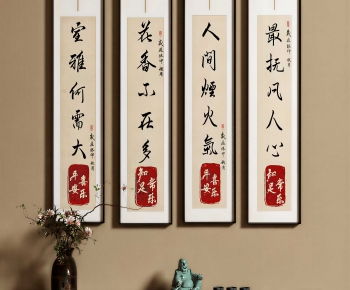 室雅何需大
平安
喜乐
花香不在多
知足
常乐
人間煙火氣
平安
喜乐
最抚凡人心
知足
常乐